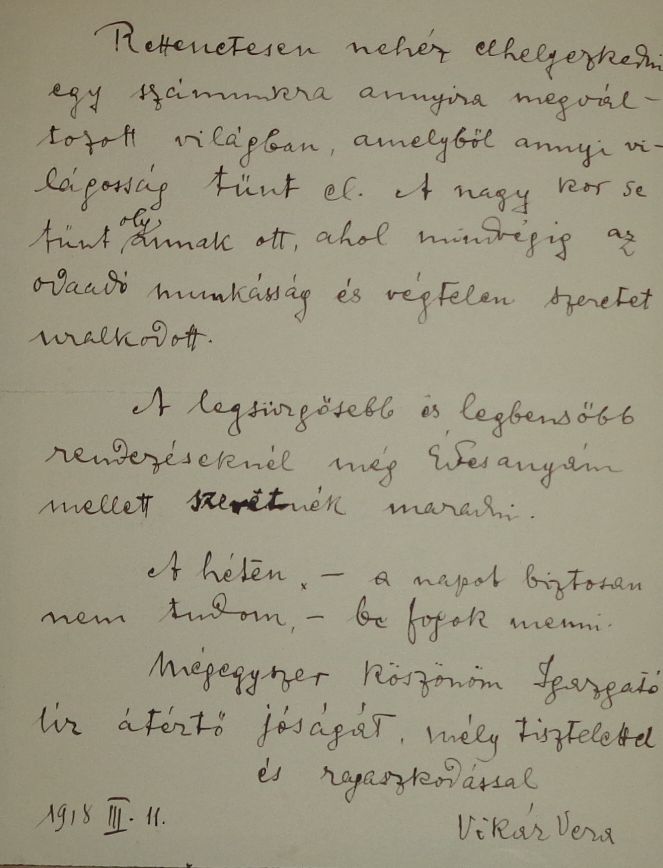 Rettenetesen nehéz elhelyezkedni
egy számunkra annyira megvál-
tozott világban, amelyből annyi vi-
lágosság tünt el. A nagy kor se
tünt oly annak ott, ahol mindvégig az
odaadó munkásság és végtelen szeretet
uralkodott.
A legsürgősebb és legbensőbb
rendezéseknél még Édesanyám
mellett szeretnék maradni.
A héten, – a napot biztosan
nem tudom, – be fogok menni.
Mégegyszer köszönöm Igazgató
Úr átértő jóságát, mély tisztelettel
és ragaszkodással
1918 III. 11.
Vikár Vera